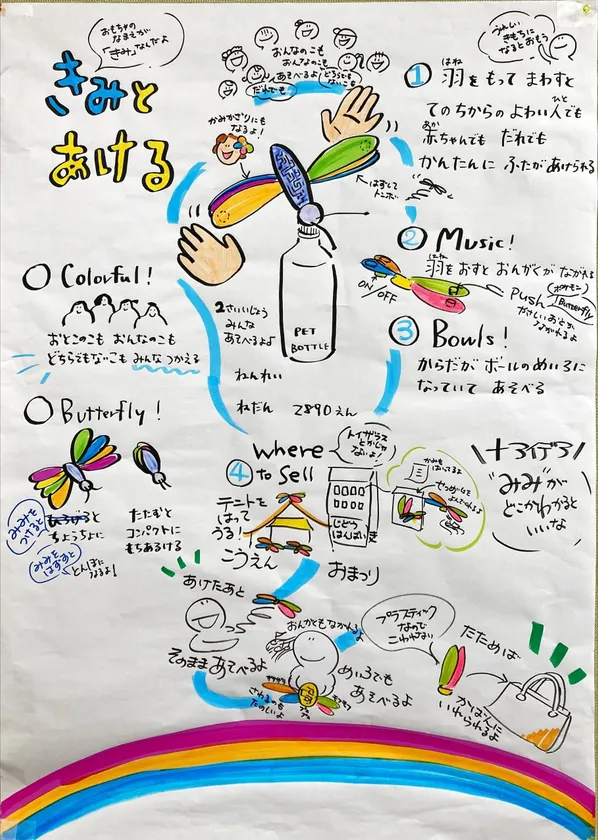 きみと
あける
おもちゃの
なまえが
「きみ」なんだよ
おんなのこも
おんなのこも
あそべるよ!どちらでも
ないこも
だれでも
うれしい
きもちに
なるとおもう
かみかざりにも
なるよ!
はずして
トンボ
① 羽をもって まわすと
はね
てのちからの よわい人でも
ひと
赤ちゃんでも だれでも
あか
かんたんに ふたがあけられる
② Music!
羽をおすと おんがくが ながれる
はね
ON/OFF
Push
ポケモン
Butterfly
③ Bowls!
からだが ボールのめいろに
なっていて あそべる
○ Colorful!
おとこのこも おんなのこも
どちらもないこも みんなつかえる
PET
BOTTLE
2さいいじょう
みんな
あそべるよ♪
ねんれい
ねだん 2890えん
○ Butterfly!
ひろげると
ちょうちょに
みみを
つけると
みみを
はずすと
とんぼになるよ!
たたむと
コンパクトに
もちあける
④ Where
to Sell
トイザラス
とかじゃ
ないよ!
テントを
はって
うる!
こうえん
じどう
はんばいき
おまつり
かみも
はいってるよ
せつめいも
+アイデア
"みみ"が
どこかわかると
いいな
あけたあと
そのまま あそべるよ
おんがくもながれるよ
めいろでも
あそべるよ
さわるのも
たのしいよ
プラスティック
なので
こわれない
たためば
かばんに
いれられるよ